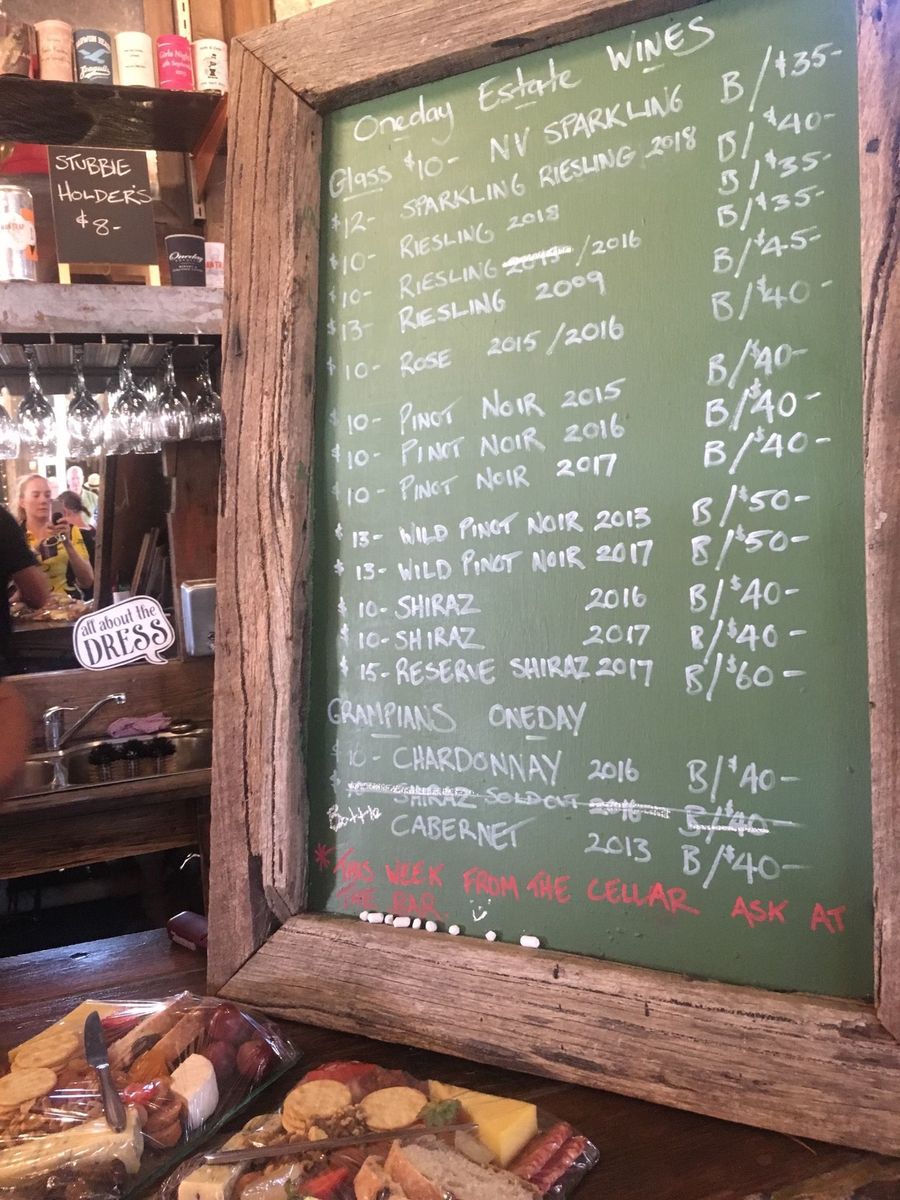 Oneday Estate WINES
Glass $10- NV SPARKLING B/$35-
$12- SPARKLING RIESLING 2018 B/$40-
$10- RIESLING 2018 B/$35-
$10- RIESLING 2015 /2016 B/$35-
$13- RIESLING 2009 B/$45-
$10- ROSE 2015/2016 B/$40-
$10- PINOT NOIR 2015 B/$40-
$10- PINOT NOIR 2016 B/$40-
$10- PINOT NOIR 2017 B/$40-
$13- WILD PINOT NOIR 2013 B/$50-
$13- WILD PINOT NOIR 2017 B/$50-
$10- SHIRAZ 2016 B/$40-
$10- SHIRAZ 2017 B/$40-
$15- RESERVE SHIRAZ 2017 B/$60-
GRAMPIANS ONEDAY
$10- CHARDONNAY 2016 B/$40-
SHIRAZ SOLD OUT 2016 B/$40-
Bottle CABERNET 2013 B/$40-
* THIS WEEK FROM THE CELLAR ASK AT
THE BAR
STUBBIE
HOLDER'S
$8-
Oneday
Girls Night
all about the
DRESS